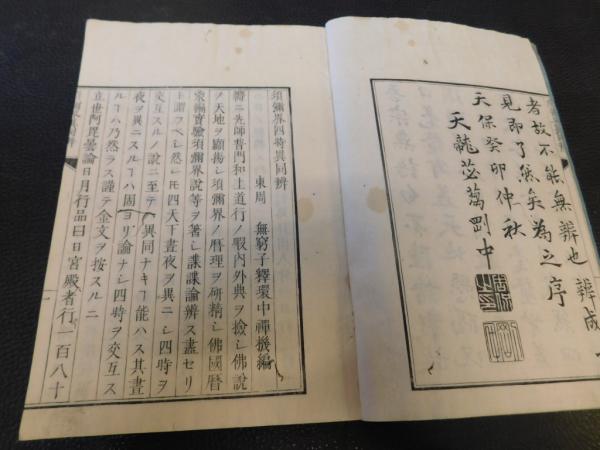 者故不能無辨也辨成
見即了然矣為之序
天保癸卯仲秋
天龍苾蒭剛中
須彌界四時異同辨
東周　無窮子釋環中禪機編
先師普門和上道行ノ暇内外典ヲ撿シ佛說
ノ天地ヲ顯揚シ須彌界ノ曆理ヲ研精シ佛國曆
象編實驗須彌界說等ヲ著シ諜諜論辨ス盡セリ
ト謂フベシ然レ𪜈四天下晝夜ヲ異ニシ四時ヲ
交互スルノ說ニ至テ異同ナキヿ能ハス其晝
夜ヲ異ニスルヿハ固ヨリ論ナシ四時ヲ交互ス
ルヿハ乃然ラス謹テ金文ヲ按スルニ
立世阿毘曇論日月行品曰日宮殿者行一百八十